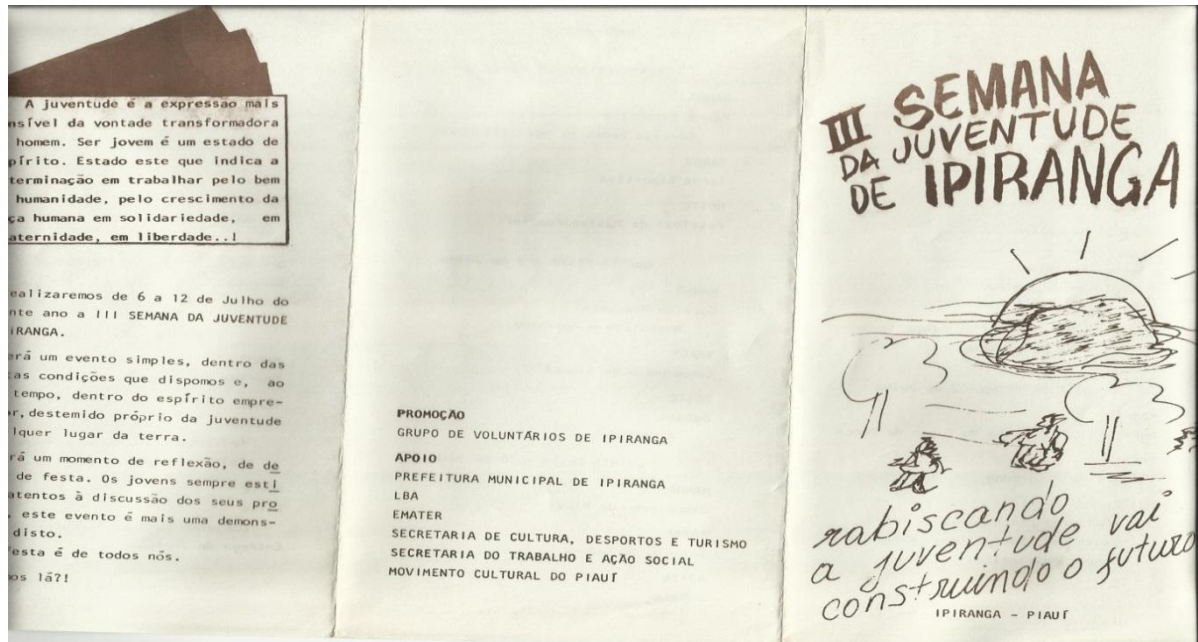 A juventude é a expressão mais
nsível da vontade transformadora
homem. Ser jovem é um estado de
pírito. Estado este que indica a
terminação em trabalhar pelo bem
humanidade, pelo crescimento da
ça humana em solidariedade, em
aternidade, em liberdade..!
ealizaremos de 6 a 12 de Julho do
nte ano a III SEMANA DA JUVENTUDE
IRANGA.
erá um evento simples, dentro das
as condições que dispomos e, ao
tempo, dentro do espírito empre-
r, destemido próprio da juventude
lquer lugar da terra.
rá um momento de reflexão, de de
de festa. Os jovens sempre esti
atentos à discussão dos seus pro
, este evento é mais uma demons-
disto.
esta é de todos nós.
os lá?!
PROMOÇÃO
GRUPO DE VOLUNTÁRIOS DE IPIRANGA
APOIO
PREFEITURA MUNICIPAL DE IPIRANGA
LBA
EMATER
SECRETARIA DE CULTURA, DESPORTOS E TURISMO
SECRETARIA DO TRABALHO E AÇÃO SOCIAL
MOVIMENTO CULTURAL DO PIAUÍ
III SEMANA
DA JUVENTUDE
DE IPIRANGA
rabiscando
a juventude vai
construindo o futuro
IPIRANGA - PIAUÍ